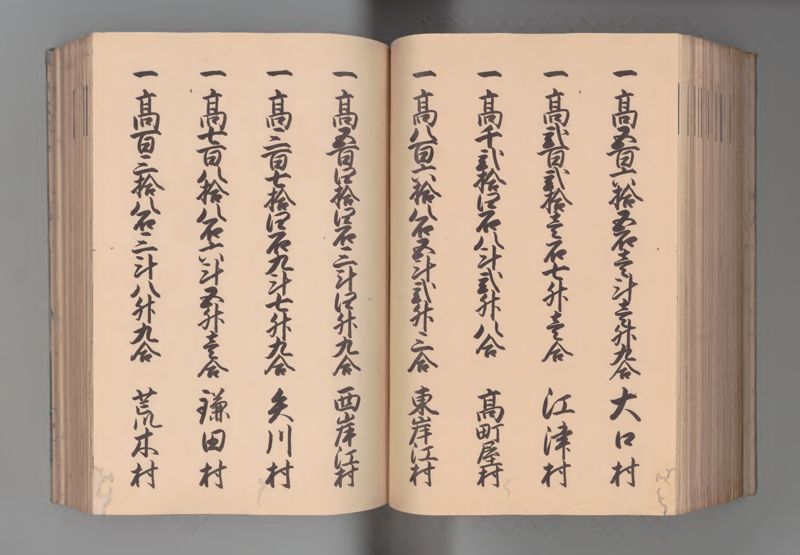 一 高五百六拾五石壱斗壱升九合 大口村
一 高弐百弐拾壱石七升壱合 江津村
一 高千弐拾四石八斗弐升八合 高町屋村
一 高八百六拾八石五斗弐升三合 東岸江村
一 高五百四拾四石三斗四升九合 西岸江村
一 高三百七拾四石九斗七升九合 矢川村
一 高七百八拾八石六斗五升壱合 鎌田村
一 高百三拾八石三斗八升九合 荒木村